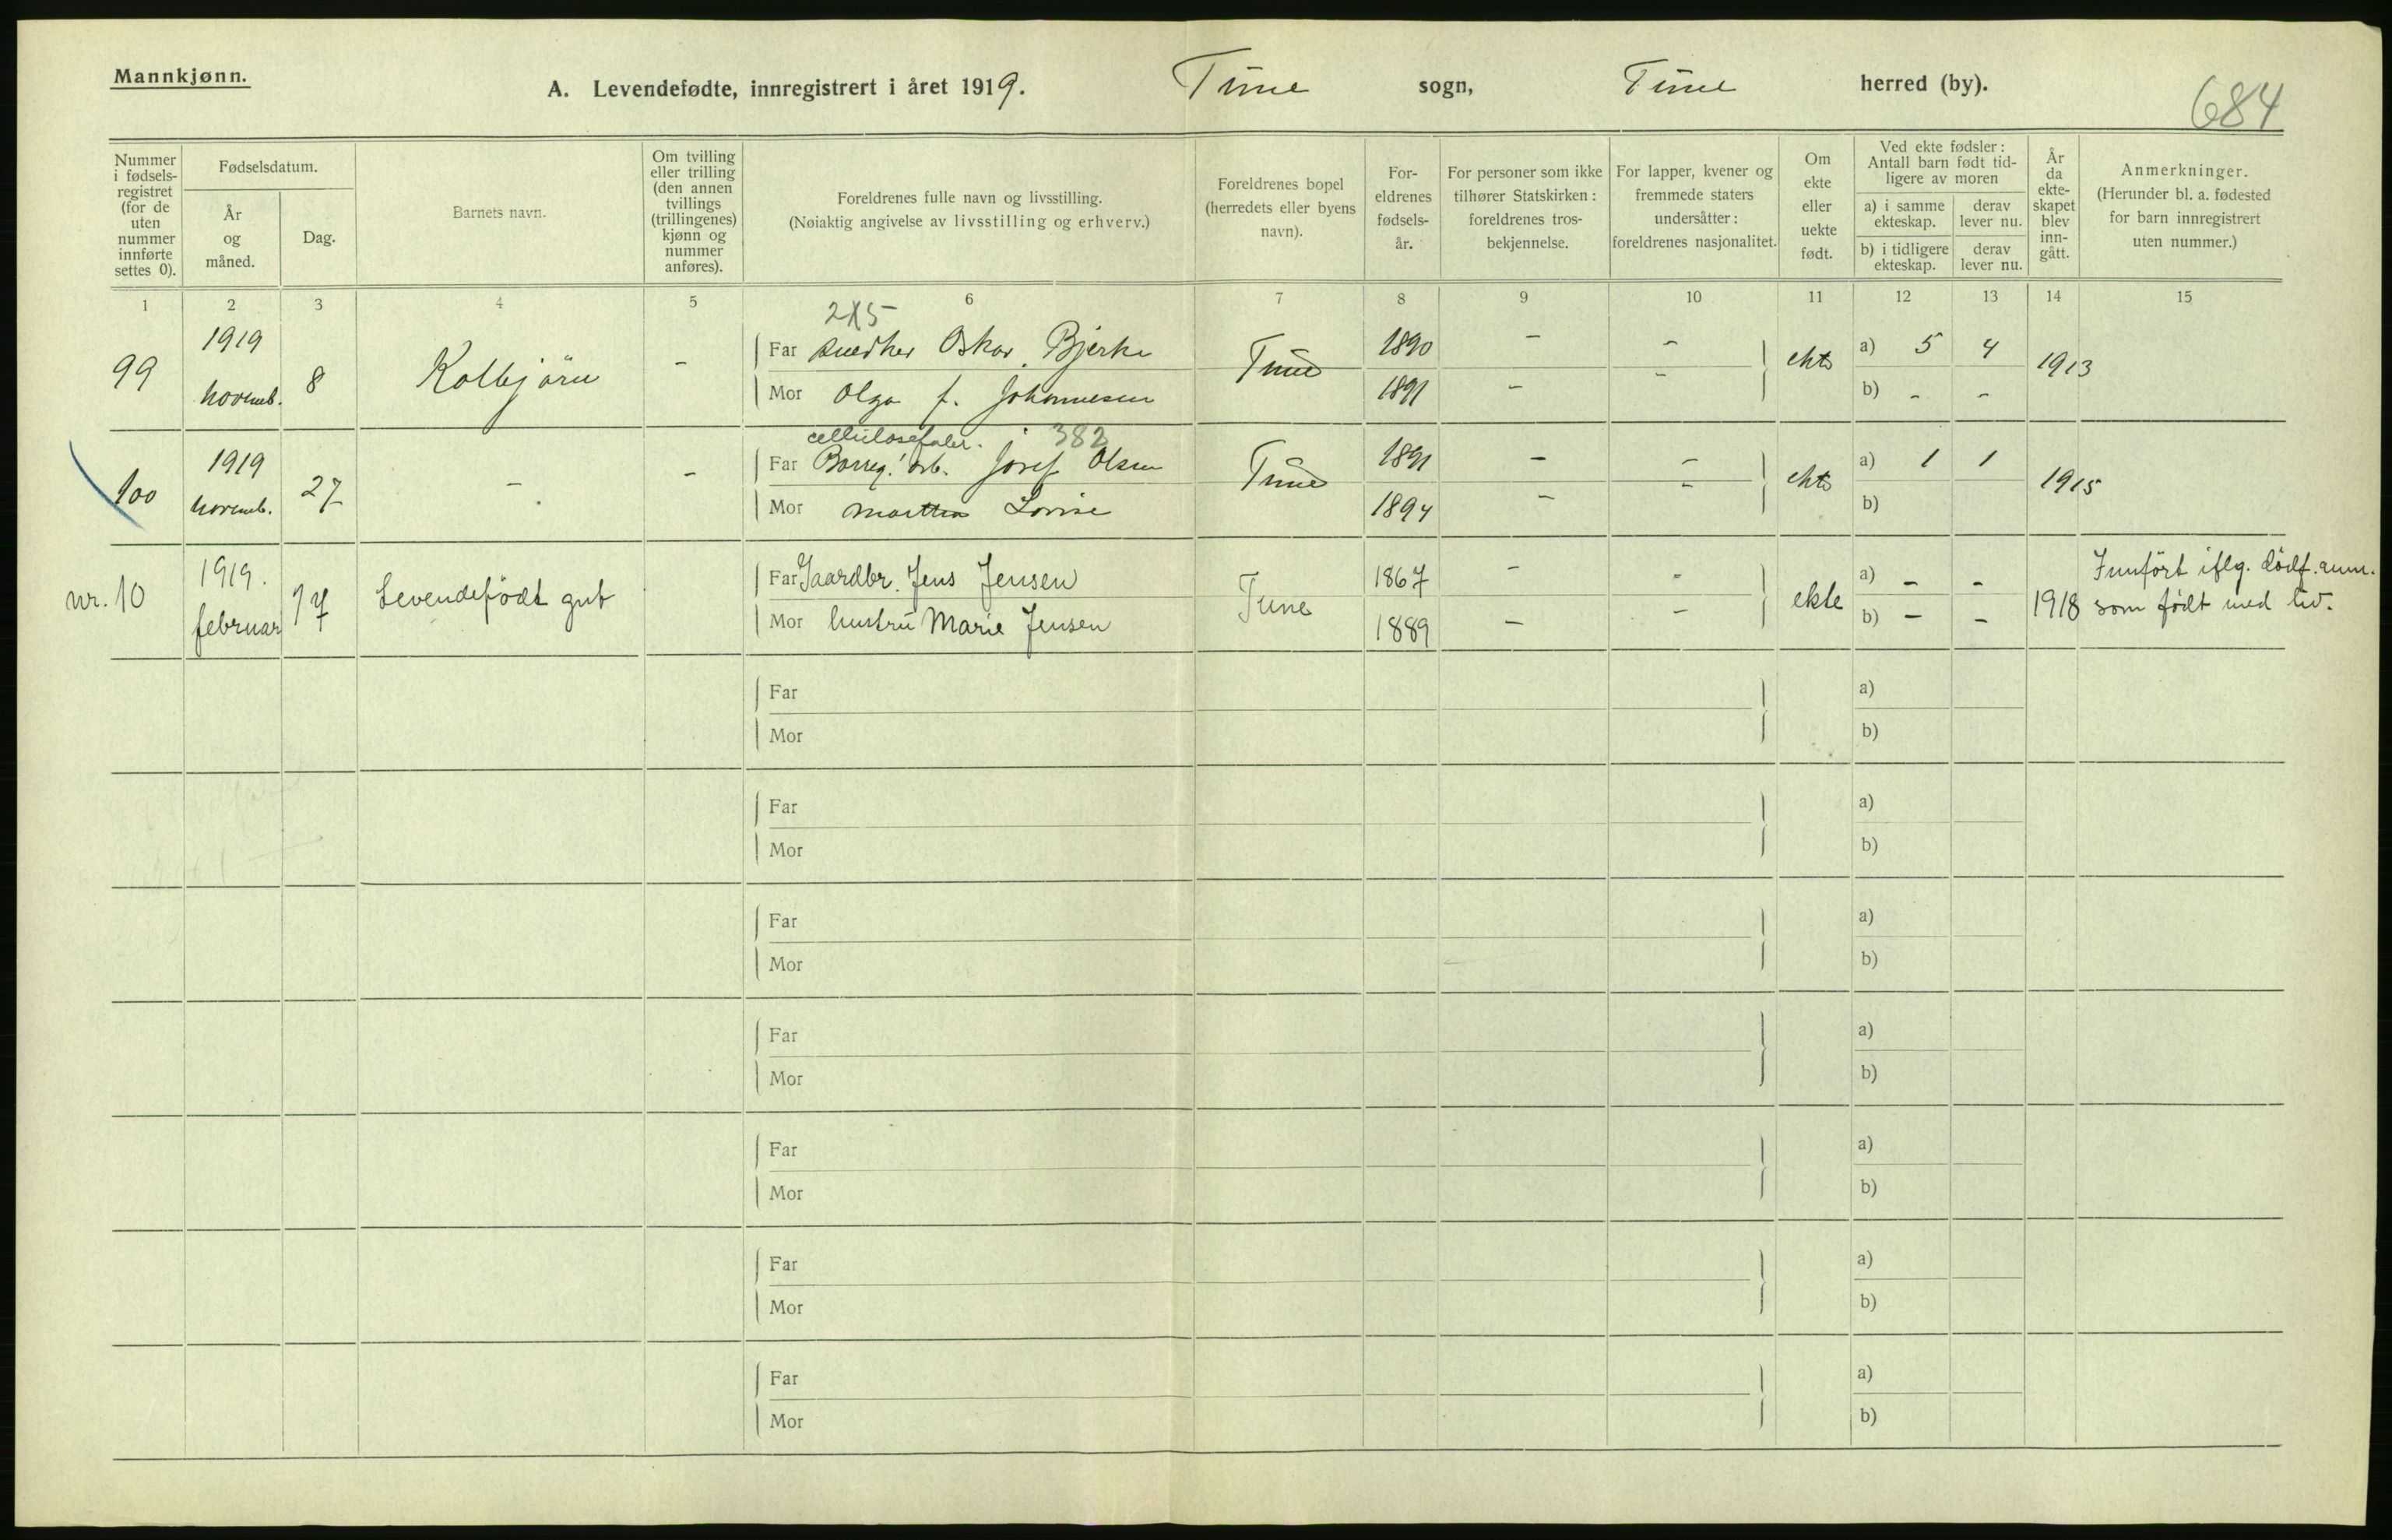 Mannkjønn.
A. Levendefødte, innregistrert i året 1919. Tune sogn, Tune herred (by).
684
Nummer i fødsels-registret (for de uten nummer innførte settes 0).
Fødselsdatum.
År og måned.
Dag.
Barnets navn.
Om tvilling eller trilling (den annen tvillings (trillingenes) kjønn og nummer anføres).
Foreldrenes fulle navn og livsstilling.
(Nøiaktig angivelse av livsstilling og erhverv.)
Foreldrenes bopel (herredets eller byens navn).
For-eldrenes fødsels-år.
For personer som ikke tilhører Statskirken: foreldrenes tros-bekjennelse.
For lapper, kvener og fremmede staters undersåtter: foreldrenes nasjonalitet.
Om ekte eller uekte født.
Ved ekte fødsler: Antall barn født tid-ligere av moren
a) i samme ekteskap.
derav lever nu.
b) i tidligere ekteskap.
derav lever nu.
År da ekte-skapet blev inn-gått.
Anmerkninger.
(Herunder bl. a. fødested for barn innregistrert uten nummer.)
1 2 3 4 5 6 7 8 9 10 11 12 13 14 15
215
99 1919 novemb. 8 Kolbjörn -
Far Snedker Oskar Bjerke Tune 1890 - - ekte a) 5 4 1913
Mor Olga f. Johannesen 1891 - - b) - -
382
100 1919 novemb. 27 - -
Far Borreg. arb. Josef Olsen Tune 1891 - - ekte a) 1 1 1915
Mor Martha Lovise 1894 - - b)
nr. 10 1919. februar 17 Levendefödt gut
Far Gaardbr. Jens Jensen Tune 1867 - - ekte a) - - 1918
Mor hustru Marie Jensen 1889 - - b) - -
Innfört iflg. dödf. anm.
som födt med liv.
Far a)
Mor b)
Far a)
Mor b)
Far a)
Mor b)
Far a)
Mor b)
Far a)
Mor b)
Far a)
Mor b)
Far a)
Mor b)